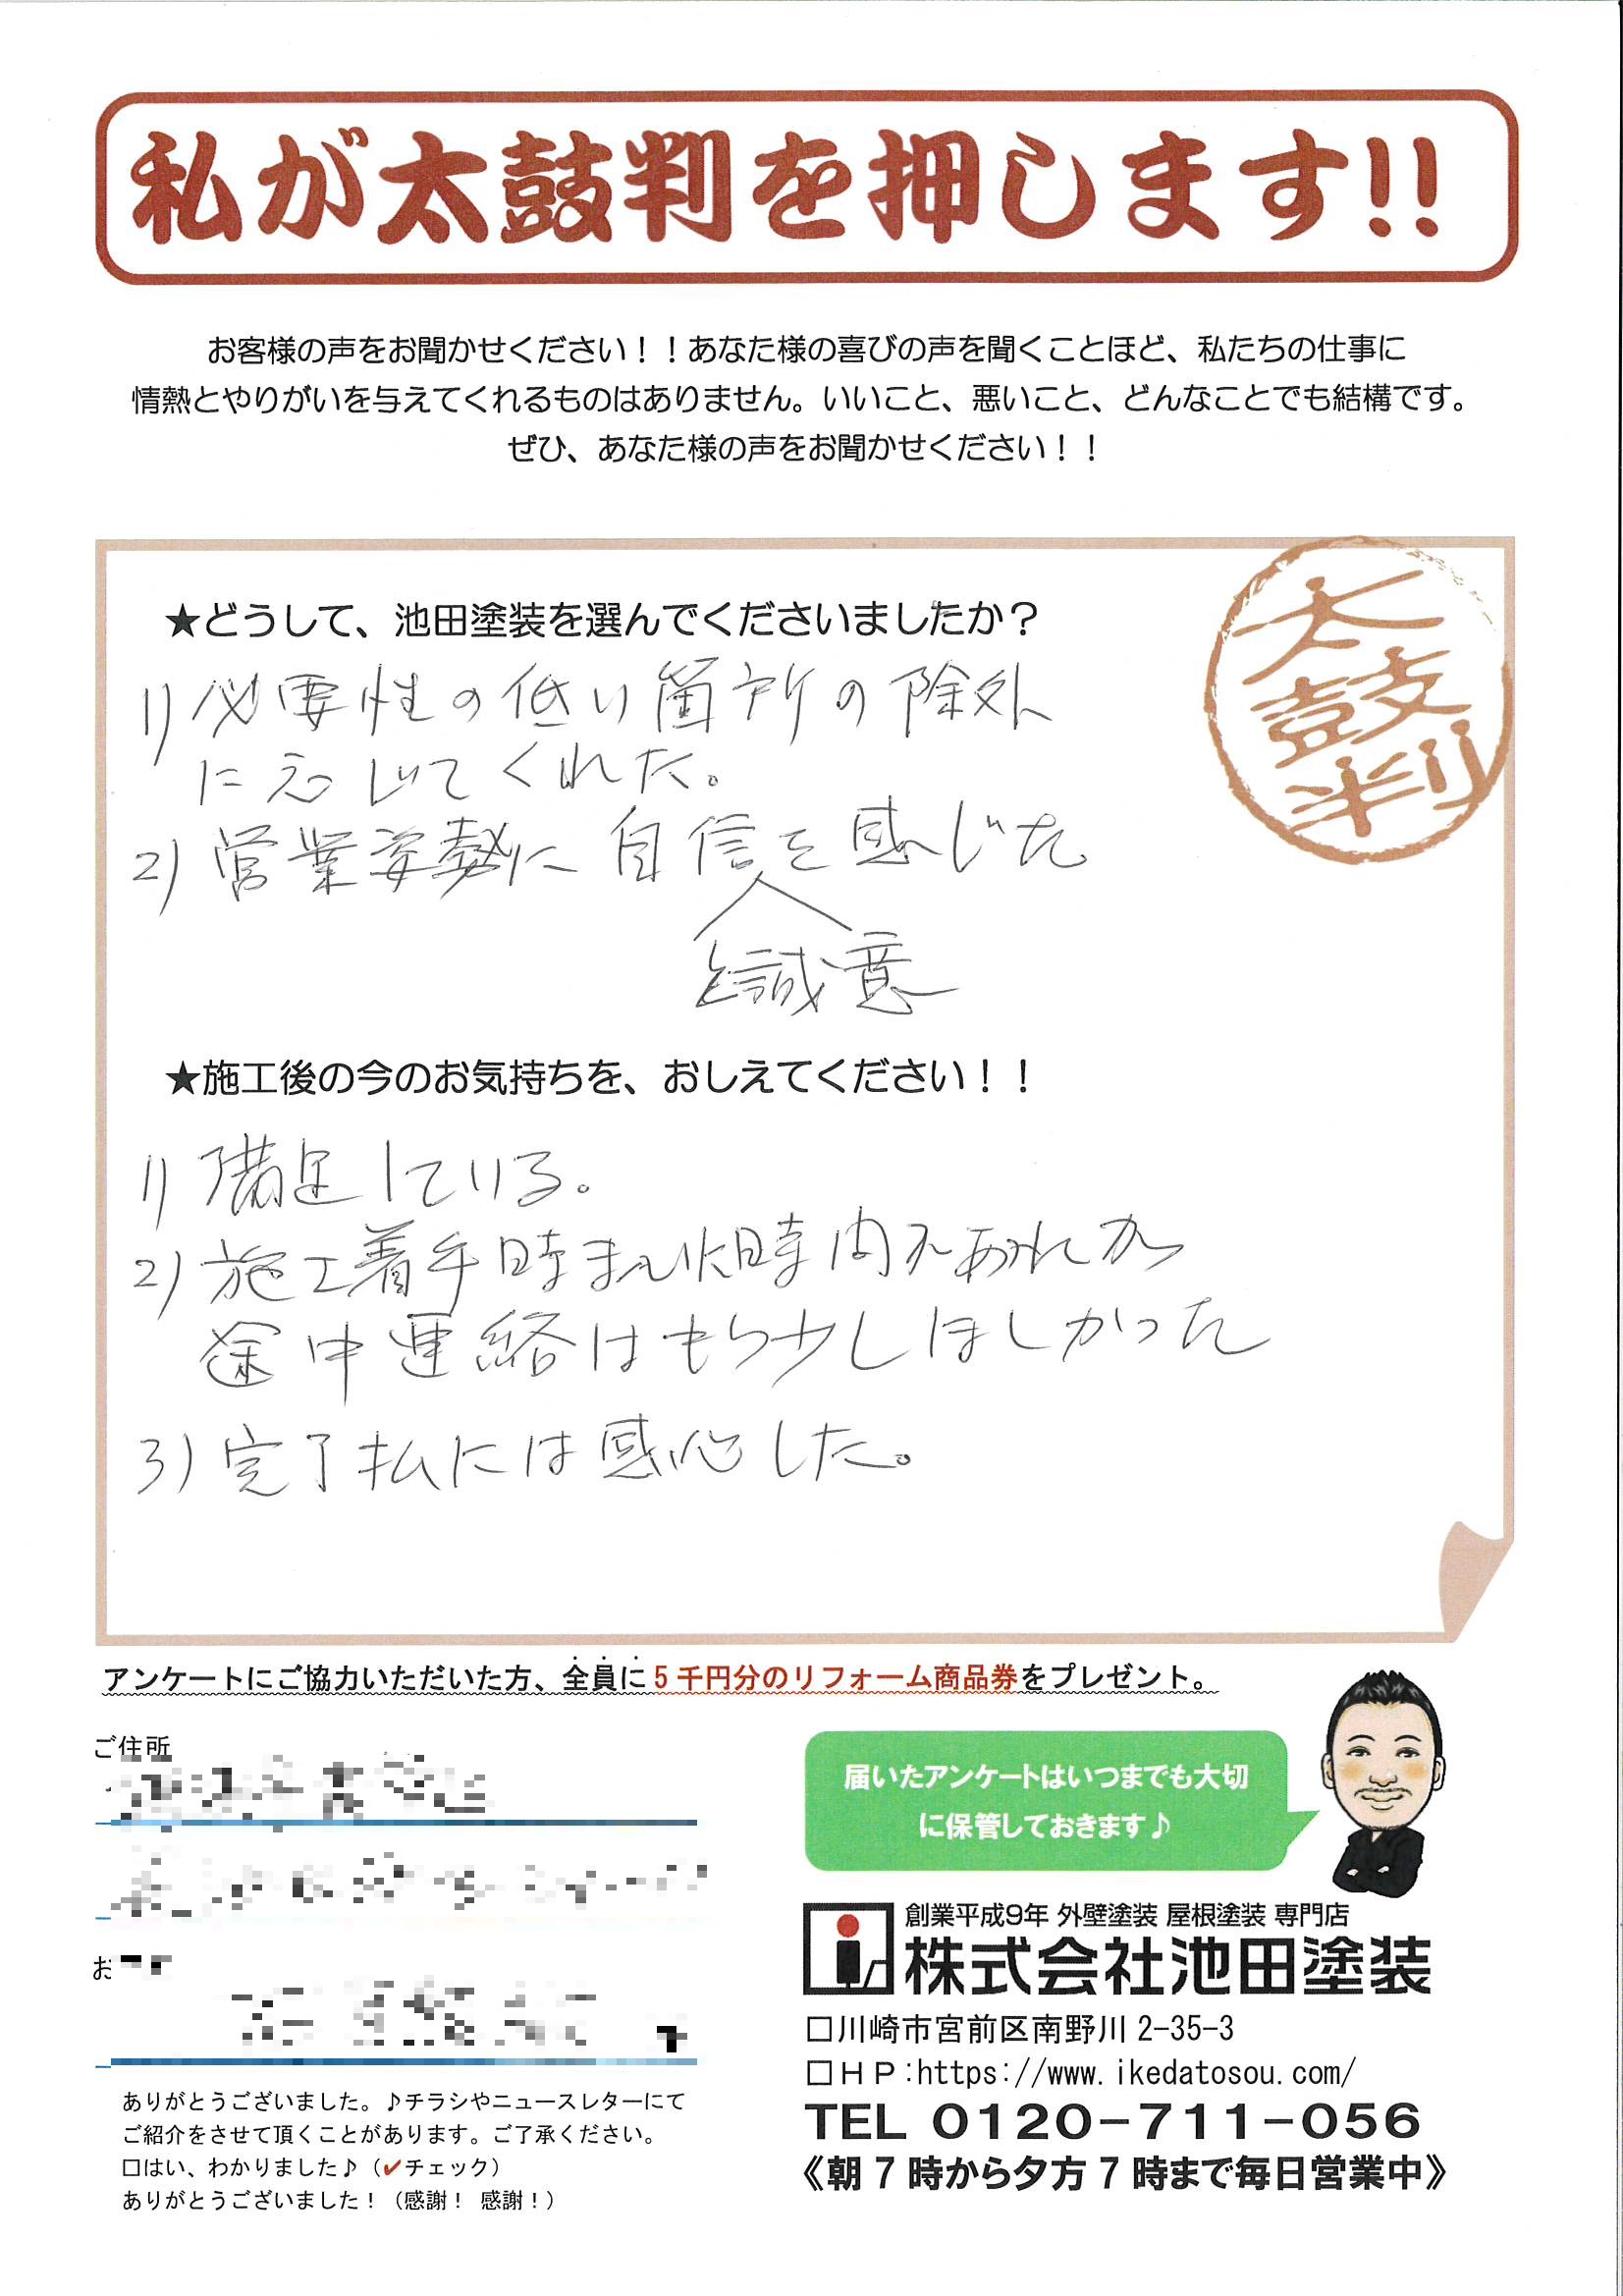 私が太鼓判を押します!!
お客様の声をお聞かせください！！あなた様の喜びの声を聞くことほど、私たちの仕事に
情熱とやりがいを与えてくれるものはありません。いいこと、悪いこと、どんなことでも結構です。
ぜひ、あなた様の声をお聞かせください！！
太鼓判
★どうして、池田塗装を選んでくださいましたか？
1) 必要性の低い箇所の除外
に応じてくれた。
2) 営業姿勢に自信を感じた
と誠意
★施工後の今のお気持ちを、おしえてください！！
1) 満足している。
2) 施工着手時まで時間があれたか
途中連絡はもう少しほしかった
3) 完了払には感心した。
アンケートにご協力いただいた方、全員に5千円分のリフォーム商品券をプレゼント。
ご住所
お
届いたアンケートはいつまでも大切
に保管しておきます♪
創業平成9年 外壁塗装 屋根塗装 専門店
株式会社池田塗装
□川崎市宮前区南野川 2-35-3
□ＨＰ:https://www.ikedatosou.com/
TEL 0120-711-056
《朝7時から夕方7時まで毎日営業中》
ありがとうございました。♪チラシやニュースレターにて
ご紹介をさせて頂くことがあります。ご了承ください。
□はい、わかりました♪（✔チェック）
ありがとうございました！（感謝！ 感謝！）